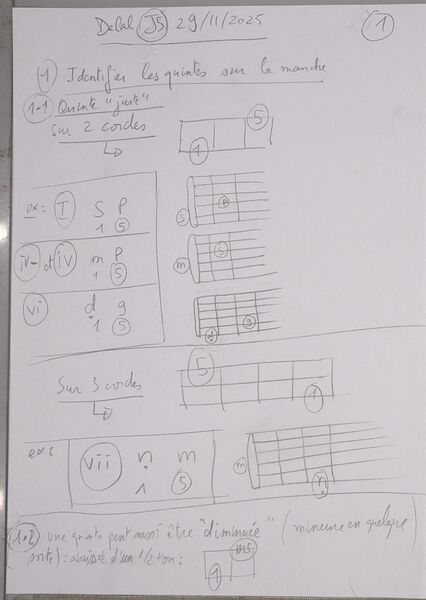 Delal J5 29/11/2025
1
1 Identifier les quintes sur le manche
1.1 Quinte "juste"
sur 2 cordes
5
1
ex: I S P
1 5
S P
iv- et iv m P
1 5
m S
vi d g
1 5
d g
Sur 3 cordes
5
1
ex:
vii n m
1 5
m
n
1.2 une quinte peut aussi être "diminuée" (mineure en quelque
sorte) : abaissée d'un 1/2 ton :
m5
1